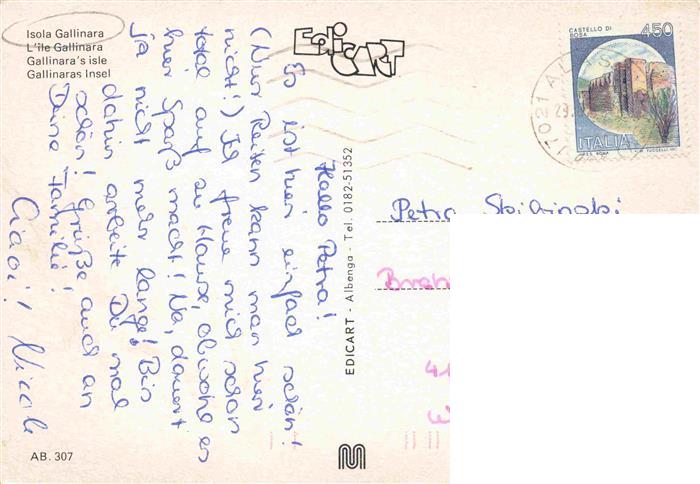 Isola Gallinara
L'île Gallinara
Gallinara's isle
Gallinaras Insel
EdiCART
CASTELLO DI
BOSA
450
ITALIA
17021 ALASSIO
Hallo Petra!
Es ist hier einfach schön!
(Nur Reiten kann man hier
nicht!) Ich freue mich schon
total auf zu Hause, obwohl es
hier Spaß macht! Na, dauert
ja nicht mehr lange! Bis
dahin arbeite Du mal
schön! Grüße, auch an
Deine Familie!
Ciaoi! Nicole
EDICART - Albenga - Tel. 0182-51352
Petra
AB. 307